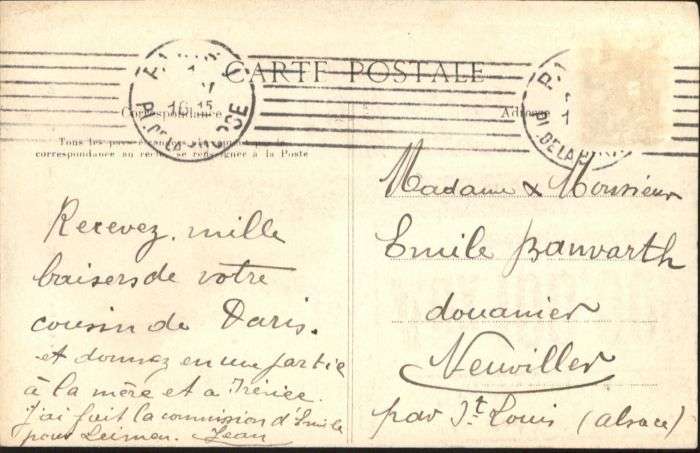 CARTE POSTALE
Correspondance
Adresse
Tous les pays
correspondance au recto, se renseigner à la Poste
PL. DE LA BOURSE
16 15
PL. DE LA
Recevez mille
baisers de votre
cousin de Paris.
et donnez en une partie
à la mère et a Irénée.
J'ai fait la commission d'Emile
pour Leimen. Jean
Madame & Monsieur
Emile Banwarth
douanier
Neuviller
par St Louis (alsace)